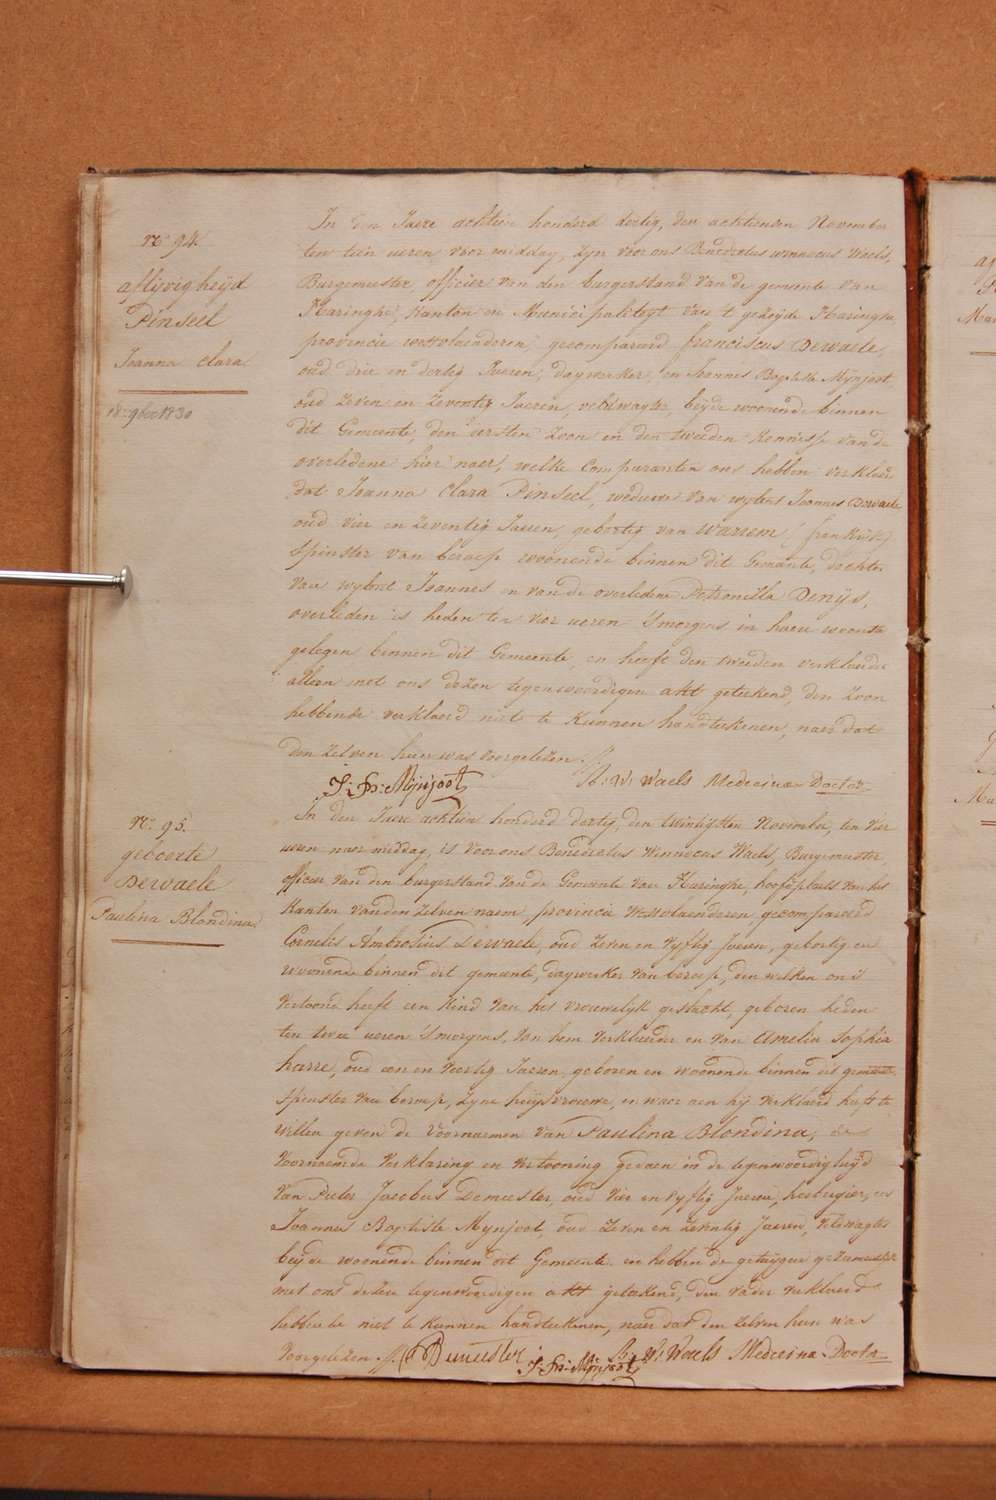 N° 94.
aflijvigheijd
Pinseel
Joanna Clara
18: 9bre 1830
In den Jaere achtien honderd dertig, den achtienden November
ten tien ueren voor middag, zyn voor ons Benedictus winnocus Waels,
Burgemeester officier van den burgerstand van de gemeente van
Haringhe, Kanton en Municipaliteyt van 't gezeijde Haringhe
provincie westvlaenderen, gecompareerd franciscus Dewaele,
oud drie en dertig Jaeren, daywerker, en Joannes Baptiste Mijnjoot,
oud zeven en zeventig Jaeren, veldwagter, beijde woonende binnen
dit Gemeente, den eersten zoon en den tweeden Kennisse van de
overledene hier naer, welke Comparanten ons hebben verklaerd
dat Joanna Clara Pinseel, weduwe van wylent Joannes Dewaele
oud vier en zeventig Jaeren, gebortig van Warrem (frankrijk)
spinster van beroep woonende binnen dit Gemeente, dochter
van wylent Joannes en van de overledene Petronilla Denijs,
overleden is heden ten vier ueren 's morgens in haere woonste
gelegen binnen dit Gemeente, en heeft den tweeden verklaerder
alleen met ons dezen tegenwoordigen akt geteekend, den zoon
hebbende verklaerd niet te Kunnen handteekenen, naer dat
den zelven hier was voorgelezen
J: Bs: Mijnjoot B: W: Waels Medecinae Doctor
N° 95.
geboorte
Dewaele
Paulina Blondina
In den Jaere achtien honderd dertig, den twintigsten November, ten vier
ueren naer middag, is voor ons Benedictus Winnocus Waels, Burgemeester,
officier van den burgerstand van de Gemeente van Haringhe, hoofdplaets van het
Kanton van den zelven naem, provincie Westvlaenderen, gecompareerd
Cornelis Ambrosius Dewaele, oud zeven en vyftig Jaeren, gebortig en
woonende binnen dit gemeente, daywerker van beroep, den welken ons
vertoond heeft een Kind van het vrouwelijk geslacht, geboren heden
ten twee ueren 's morgens, van hem verklaerder en van Amelia Sophia
harre, oud een en veertig Jaeren, geboren en woonende binnen dit gemeente,
spinster van beroep, zyne huysvrouwe, en waer aen hij verklaerd heeft te
willen geven de voornaemen van Paulina Blondina, de
voornoemde verklaring en vertooning gedaen in de tegenwoordigheyd
van Pieter Jacobus Demeester, oud vier en vyftig Jaeren, herbergier, en
Joannes Baptiste Mynjoot, oud zeven en zeventig Jaeren, veldwagter
beijde woonende binnen dit Gemeente en hebben de getuygen gezamentlijk
met ons dezen tegenwoordigen akt geteekend, den vader verklaerd
hebbende niet te kunnen handteekenen, naer dat den zelven hun was
voorgelezen P: Demeester J: Bs: Mijnjoot B: W: Waels Medecinae Doctor